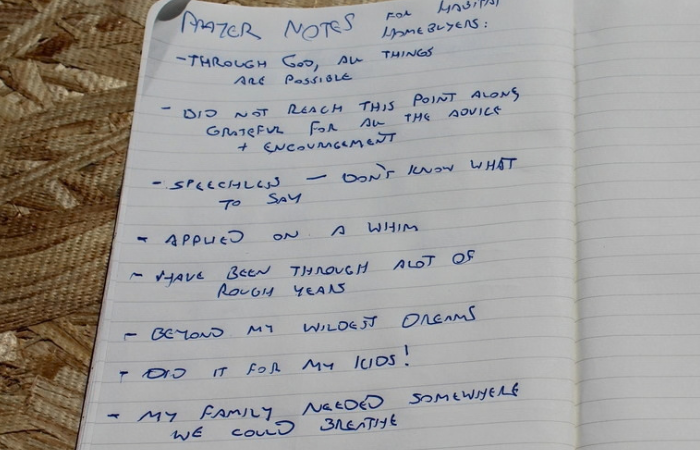 PRAYER NOTES FOR HABITAT
HOMEBUYERS:
- THROUGH GOD, ALL THINGS
ARE POSSIBLE
- DID NOT REACH THIS POINT ALONG
GRATEFUL FOR ALL THE ADVICE
+ ENCOURAGEMENT
- SPEECHLESS — DON'T KNOW WHAT
TO SAY
- APPLIED ON A WHIM
- HAVE BEEN THROUGH ALOT OF
ROUGH YEARS
- BEYOND MY WILDEST DREAMS
- DID IT FOR MY KIDS!
- MY FAMILY NEEDED SOMEWHERE
WE COULD BREATHE